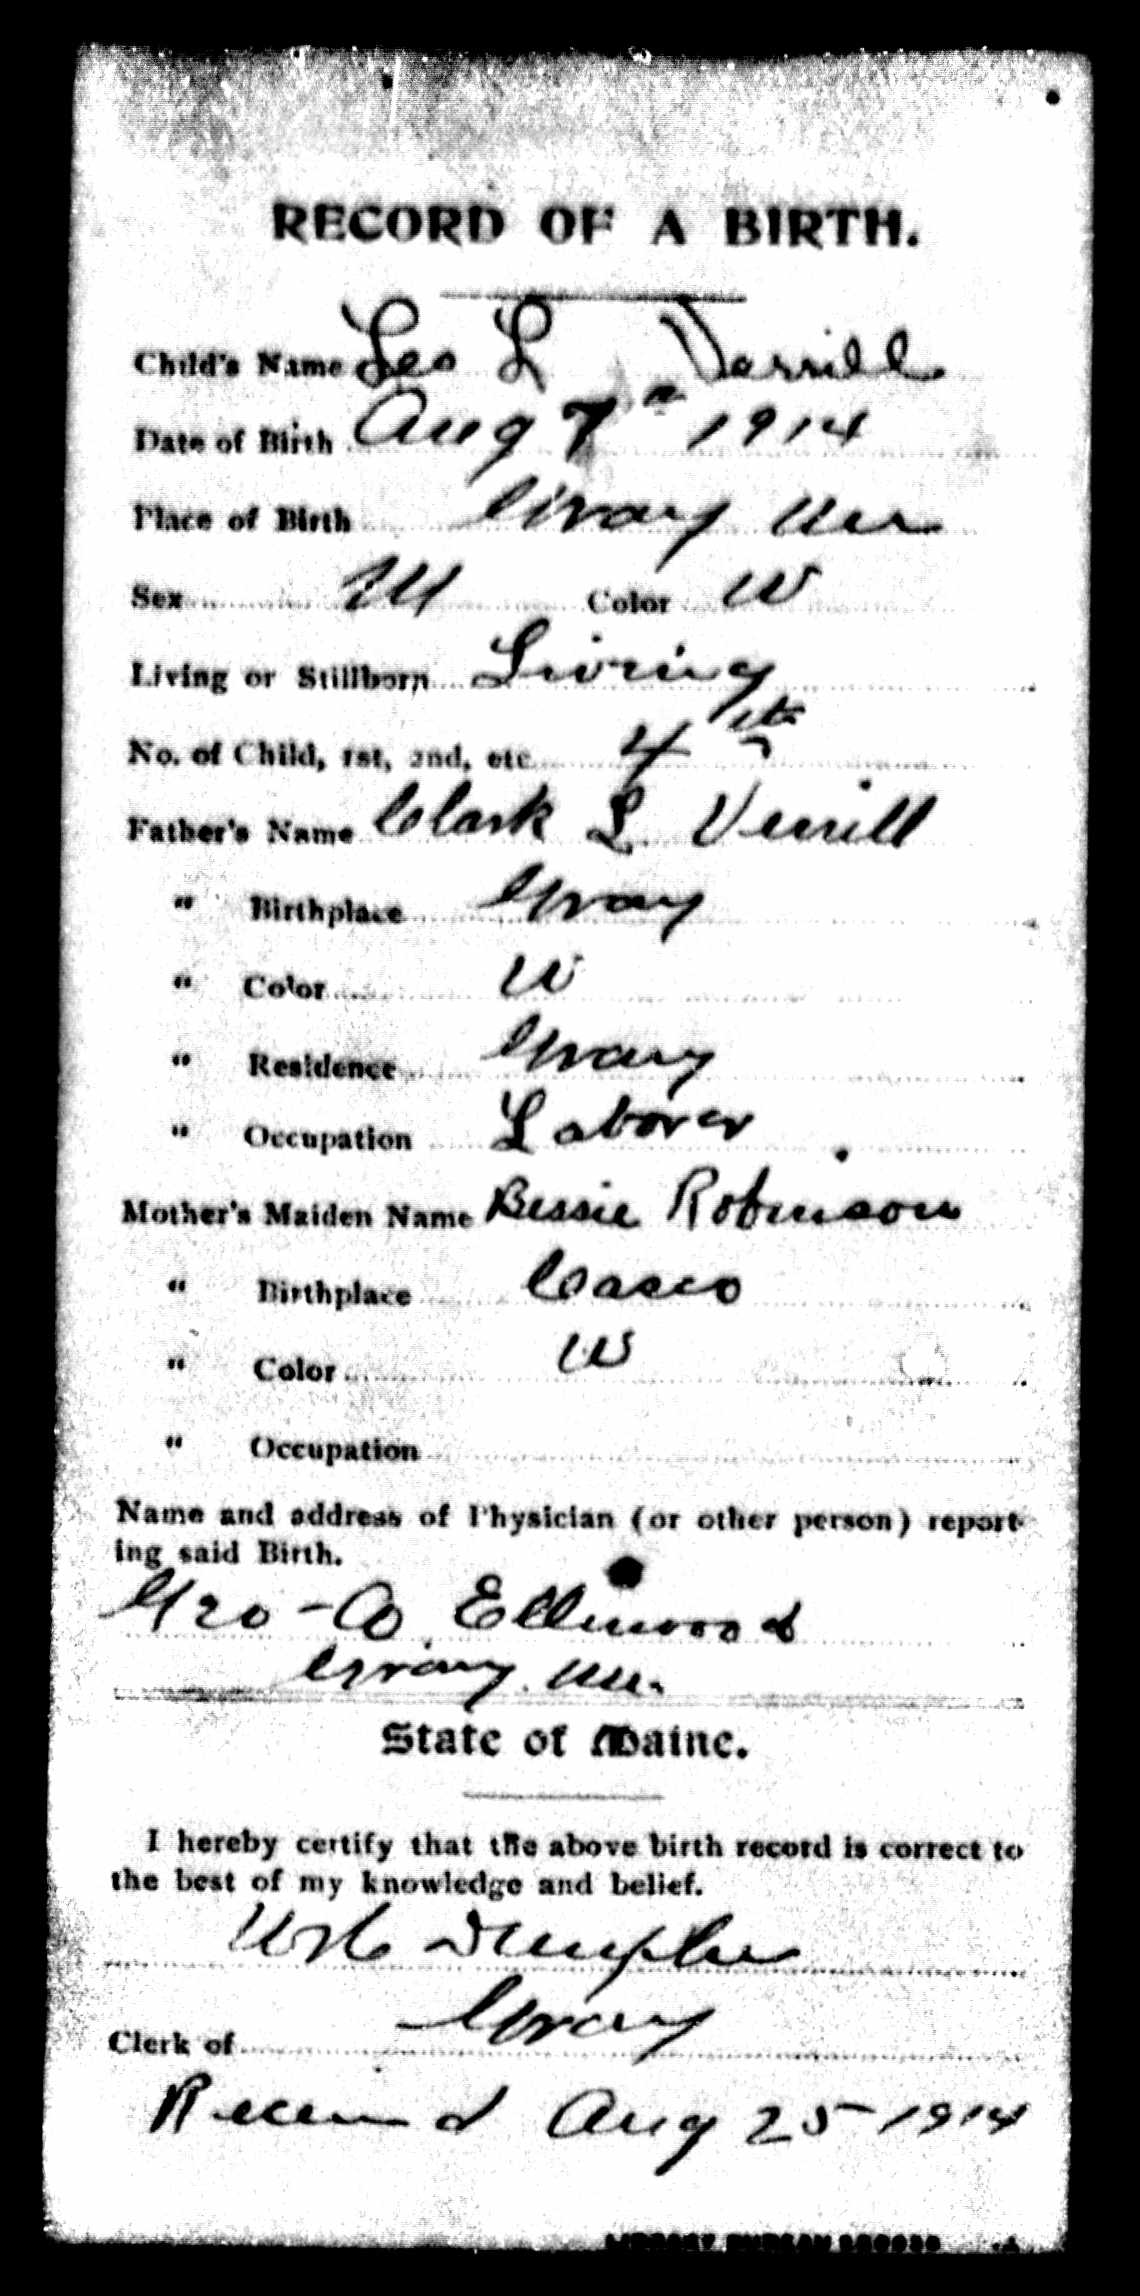 RECORD OF A BIRTH.
Child's Name Leo L Verrill
Date of Birth Aug 7th 1914
Place of Birth Gray Me
Sex M Color W
Living or Stillborn Living
No. of Child, 1st, 2nd, etc. 4th
Father's Name Clark L Verrill
" Birthplace Gray
" Color W
" Residence Gray
" Occupation Laborer
Mother's Maiden Name Bessie Robinson
" Birthplace Casco
" Color W
" Occupation
Name and address of Physician (or other person) report-
ing said Birth.
Geo A Ellinwood
Gray Me.
State of Maine.
I hereby certify that the above birth record is correct to
the best of my knowledge and belief.
Clerk of Gray
Received Aug 25 1914